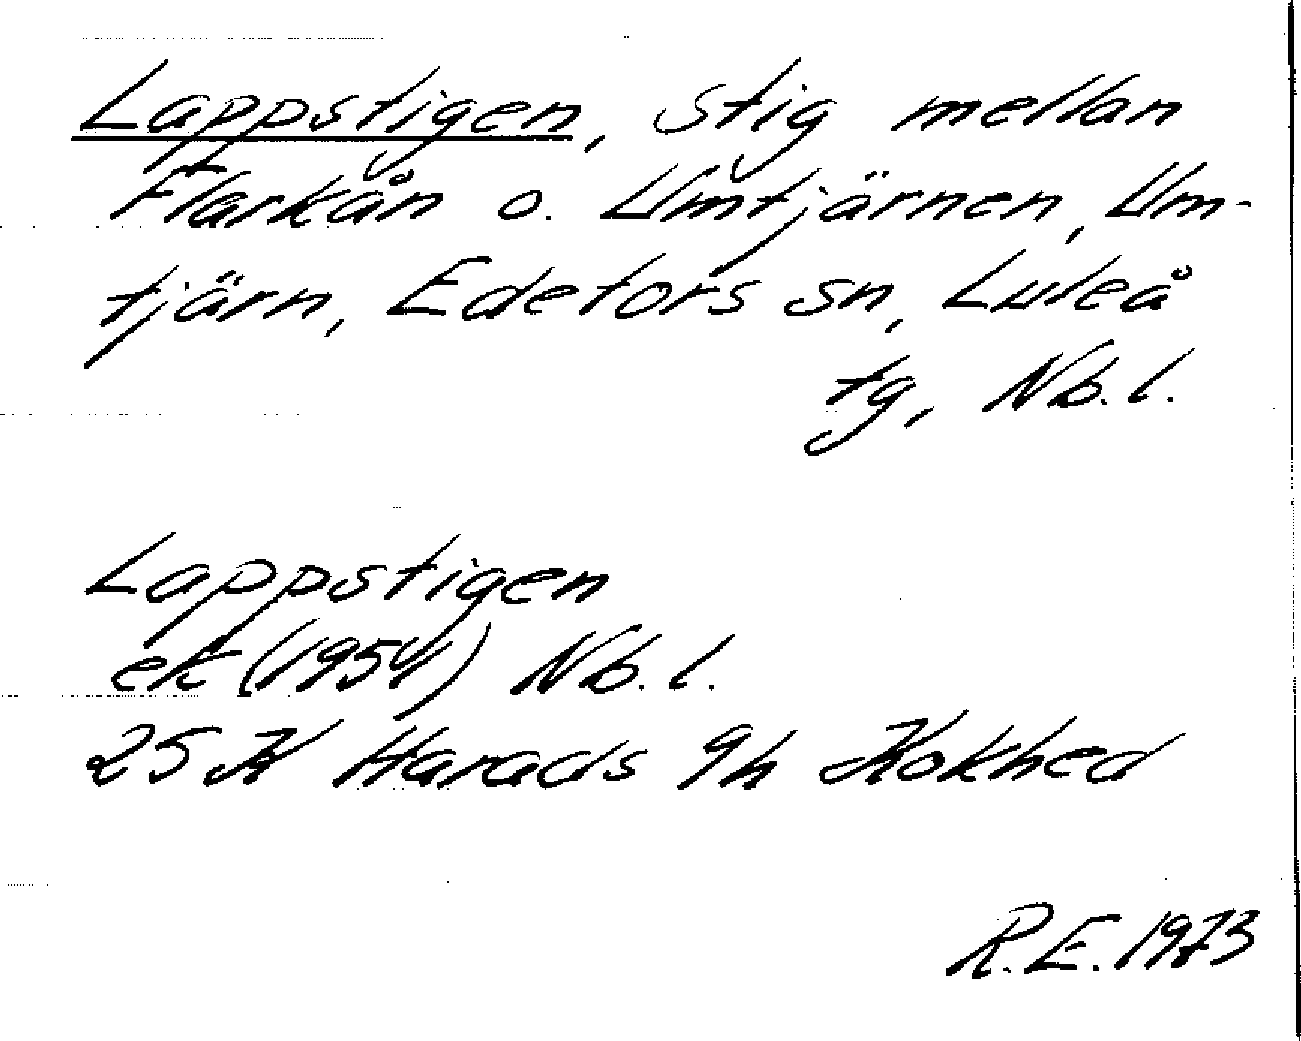 Lappstigen, stig mellan
Flarkån o. Umtjärnen, Um-
tjärn, Edefors sn, Luleå
tg, Nb. l.
Lappstigen
ek (1954) Nb. l.
25 K Harads 9h Kokhed
R.E. 1973